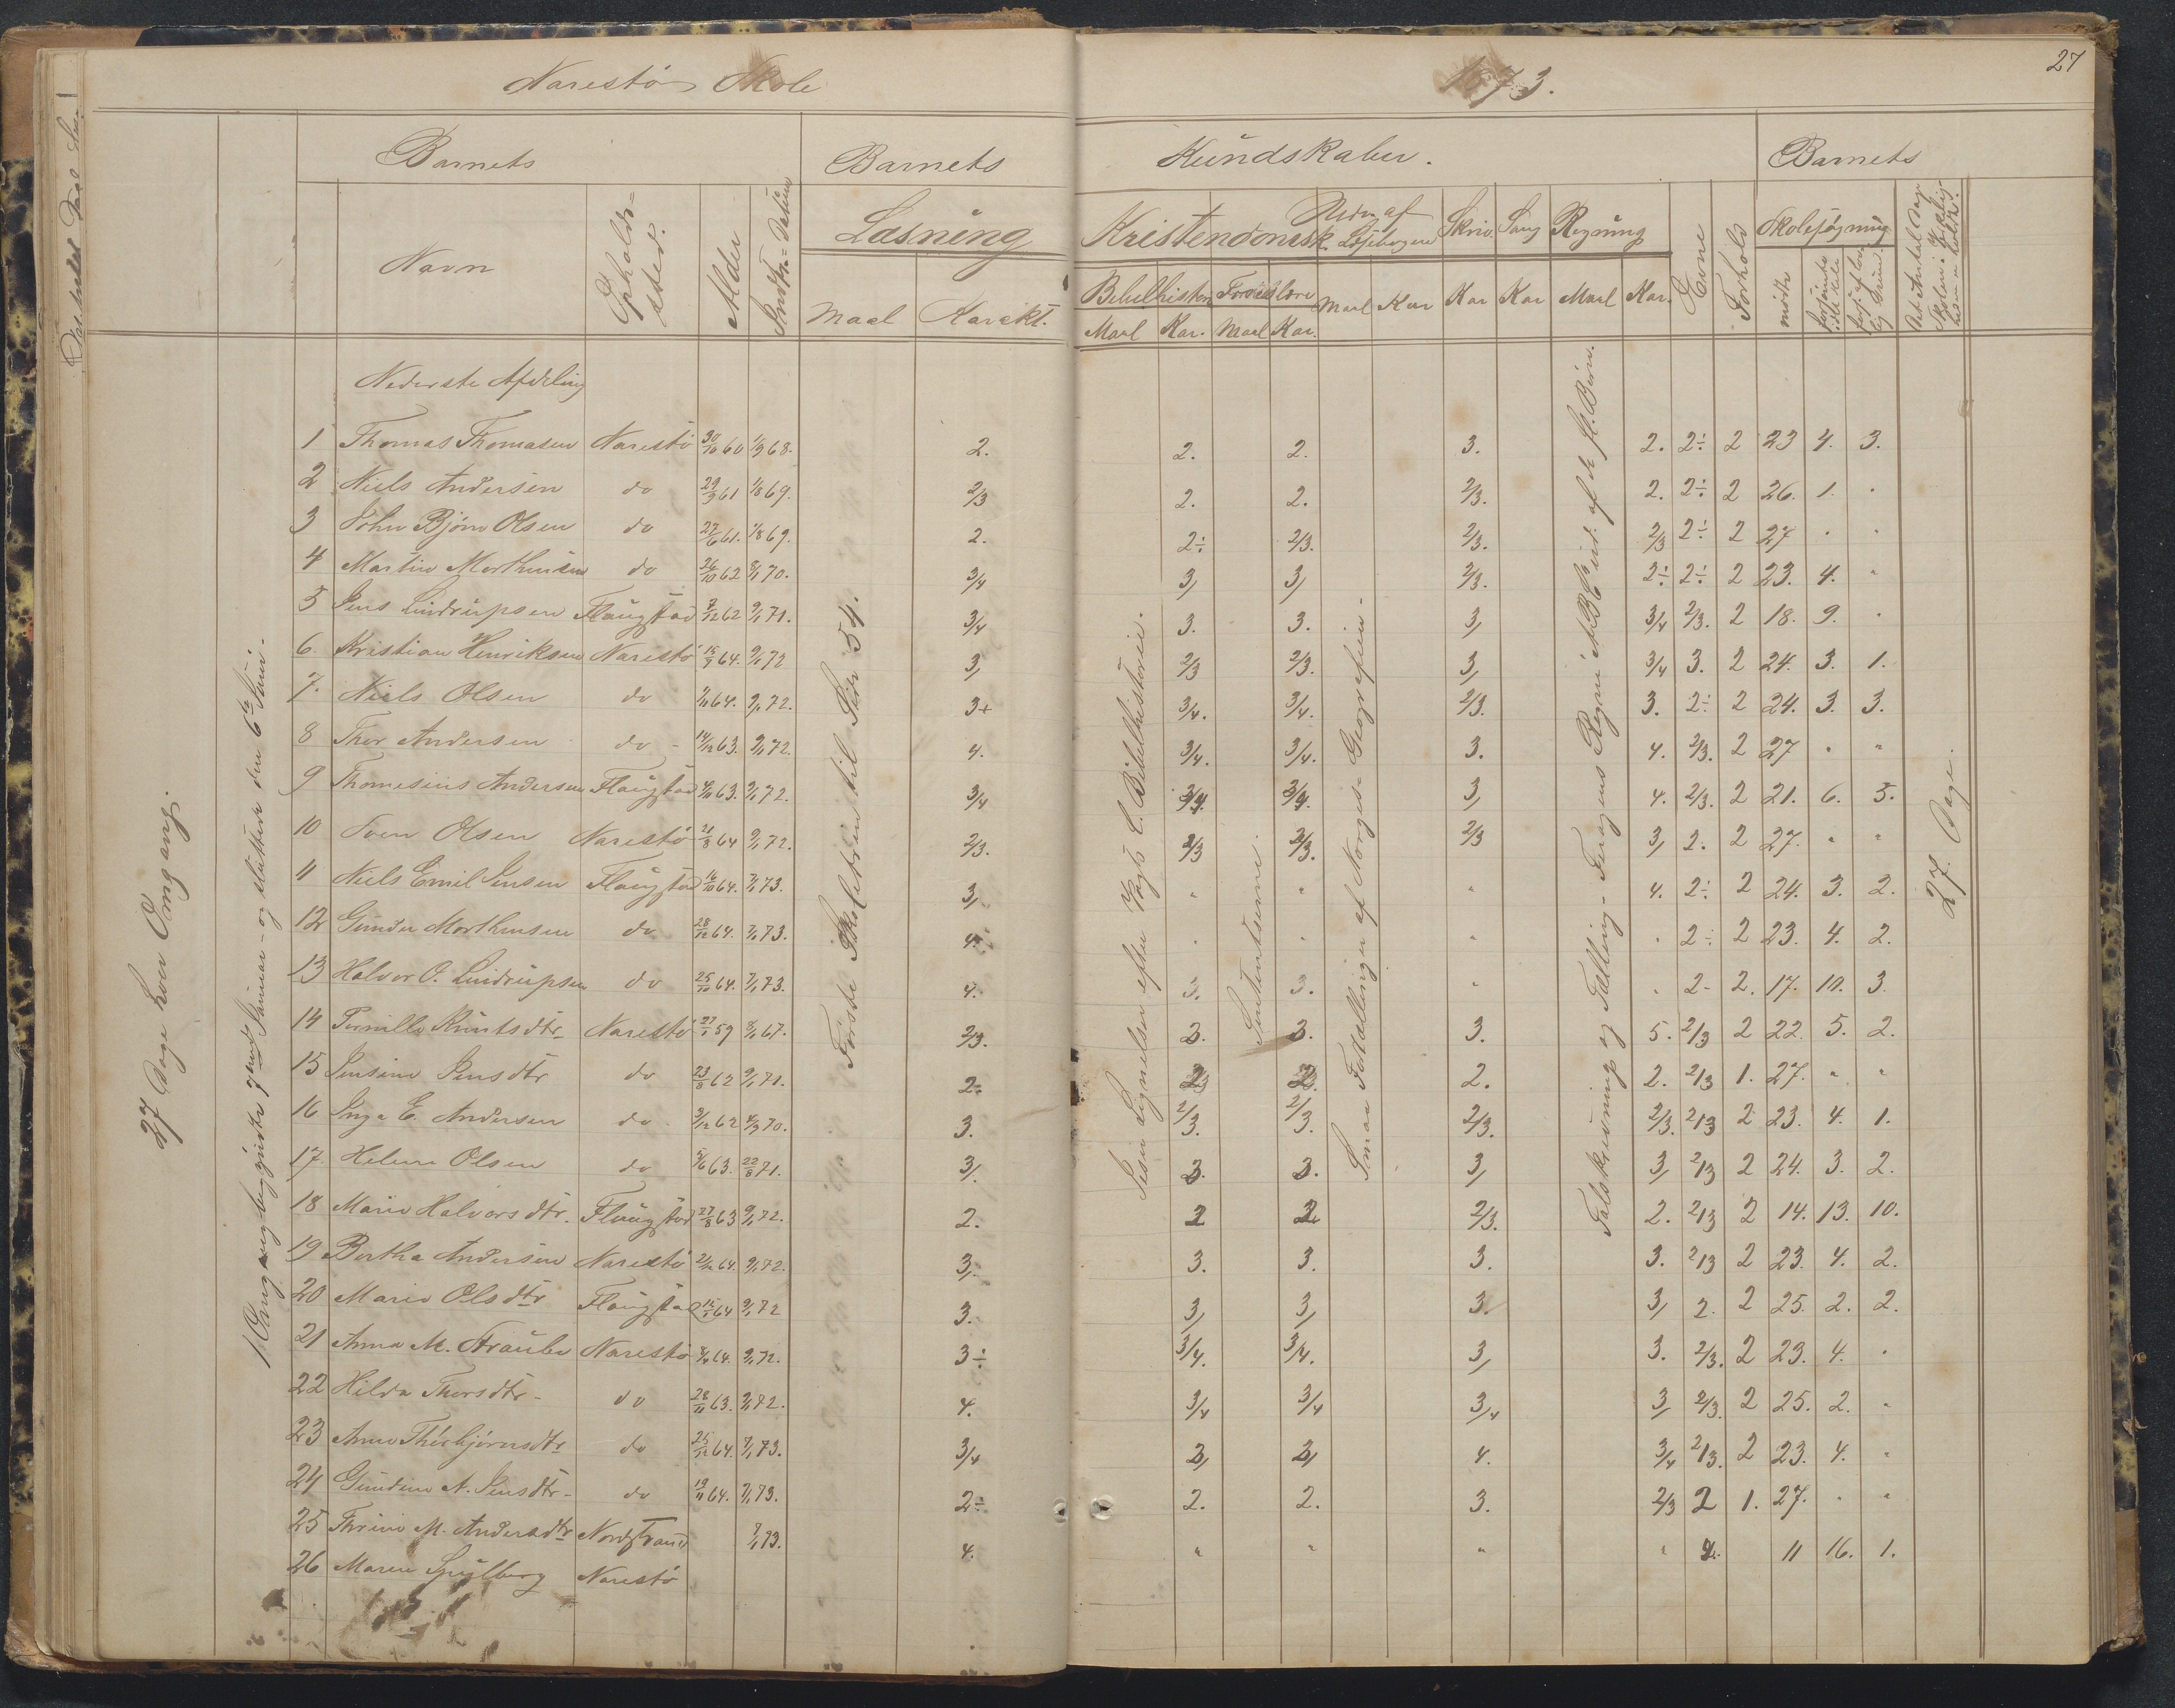 Narestö Skole
1873.
27
Barnets
Barnets
Kundskaber.
Barnets
Navn
Opholds-sted.
Alder
Indtr.-Datum
Læsning
Maal
Karakt.
Kristendomsk.
Udv. af Læsebogen
Skriv.
Sang
Regning
Evne
Forhold
Skolesøgning
Bibelhistorie
Troeslære
Maal Kar. Maal Kar. Maal Kar Kar Kar Maal Kar.
mödte
27 Dage hver Omgang.
1. Omgang begyndte 7nd Januar - og sluttede den 6te Juni.
Förste Skoletrin til Side 54.
Lesin Lignelser efter Vogts l. Bibelhistorie.
Sententserne.
Smaa Fortællinger af Norges Geografien.
Talskrivning og Tælling - Regne
27. Dage.
Nederste Afdeling
1 Thomas Thomasen Narestö 30/10 60 1/9 68. 2. 2. 2. 3. 2. 2÷ 2 23 4. 3.
2 Niels Andersen do 29/9 61 1/8 69. 2/3 2. 2. 2/3. 2. 2÷ 2 26. 1. "
3 John Bjørn Olsen do 27/6 61. 1/8 69. 2. 2÷ 2/3. 2/3. 2/3 2÷ 2 27 " "
4 Martin Morthensen do 26/10 62 8/1 70. 3/4 3, 3, 2/3. 2÷ 2÷ 2 23. 4. "
5 Jens Lindrupsen Flaugstad 7/12 62 9/1 71. 3/4 3. 3. 3, 3/4 2/3. 2 18. 9. "
6. Kristian Henriksen Narestö 15/9 64. 9/1 72 3, 2/3 2/3. 3, 3/4 3. 2 24. 3. 1.
7. Niels Olsen do 64. 9/1 72. 3+ 3/4. 3/4. 2/3. 3. 2÷ 2 24. 3. 3.
8 Thor Andersen do 14/12 63. 9/1 72. 4. 3/4. 3/4. 3. 4. 2/3. 2 27 " "
9 Thomesius Andersen Flaugstad 63. 9/1 72. 3/4 3/4. 3/4. 3, 4. 2/3. 2 21. 6. 5.
10 Sven Olsen Narestö 21/8 64 9/1 72. 2/3. 2/3 2/3. 2/3 3, 2. 2 27. " "
11 Niels Emil Jensen Flaugstad 16/10 64. 7/1 73. 3, " " " 4. 2÷ 2 24. 3. 2.
12 Gunder Morthensen do 28/12 64. 7/1 73. 4. " " " " 2÷ 2 23. 4. 2.
13 Halvor O. Lindrupsen do 25/10 64. 7/1 73. 4. 3. 3. " " 2- 2. 17. 10. 3.
14 Pernille Knutsdtr Narestö 27/1 59 8/1 67. 2/3. 3. 3. 3. 5. 2/3 2 22. 5. 2.
15 Jensine Jensdtr do 23/8 62 9/1 71. 2÷ 2 2. 2. 2. 2/3 1. 27. " "
16 Inga E. Andersen do 3/12 62 4/9 70. 3. 2/3. 2/3. 2/3. 2/3. 2/3 2 23. 4. 1.
17. Helene Olsen do 5/6 63. 22/8 71. 3, 3. 3. 3, 3, 2/3 2 24. 3. 2.
18 Marie Halvorsdtr. Flaugstad 27/8 63 9/1 72. 2. 2 2 2/3. 2. 2/3 2 14. 13. 10.
19 Bertha Andersen Narestö 21/12 64. 9/1 72. 3, 3. 3. 3. 3. 2/3 2 23. 4. 2.
20 Marie Olsdtr Flaugstad 64 9/1 72 3. 3, 3, 3. 3, 2. 2 25. 2. 2.
21 Anna M. Straube Narestö 64. 9/1 72. 3÷ 3/4. 3/4. 3, 3. 2/3. 2 23. 4. "
22 Hilda Thorsdtr- do 28/11 63. 9/1 72. 4. 3/4 3/4 3/4 3, 2/3. 2 25. 2. "
23 Anne Thorbjørnsdtr do 25/12 64. 7/1 73. 3/4 3, 3, 4. 3/4 2/3. 2 23. 4. "
24 Gundine A. Jensdtr- do 19/11 64. 7/1 73. 2÷ 2. 2. 3. 2/3 2 1. 27. " "
25 Thrine M. Andersdtr Nordstrand 7/1 73. 4. " " " " 2. 11 16. 1.
26 Maren Spilberg Narestö